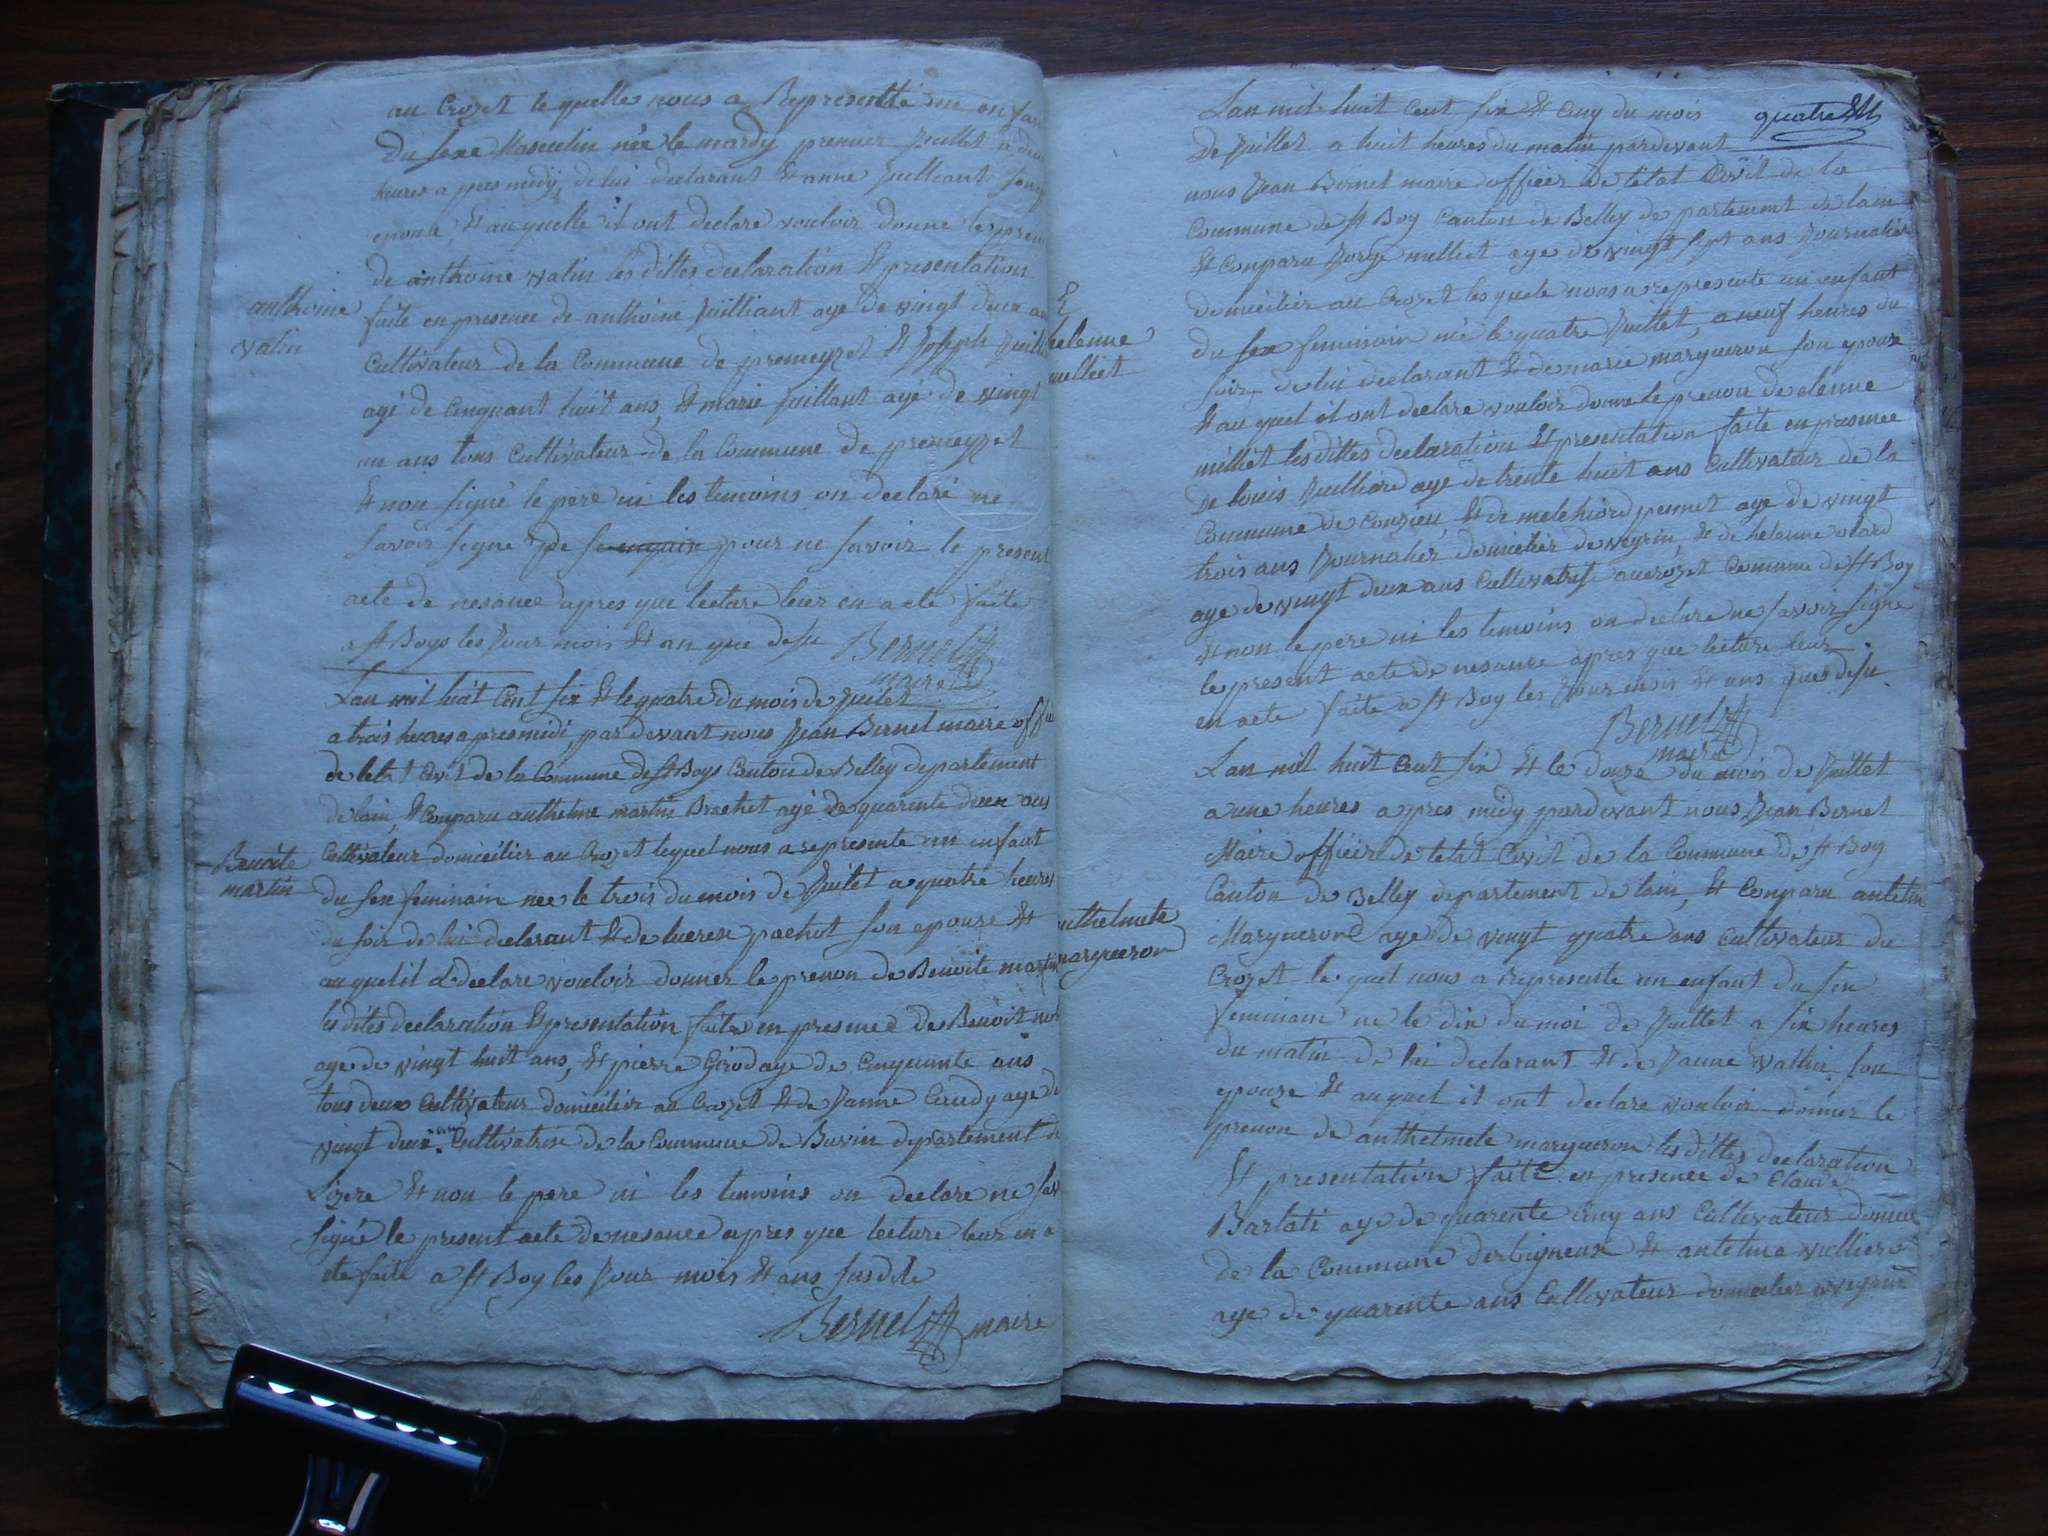 au Crozet le quelle nous a Representté un enfan
Du sexe Masculin née le mardy premier Juillet a deu
heures a pres midy, de lui declarant Et anne Juilliant son
epouse, Et au quelle il ont declare vouloir donne le pren
de anthoine vatin les dittes declaration Et presentation
anthoine
vatin
faite en presence de anthoine Juilliant aye de vingt deux an
Cultivateur de la Commune de premeyzet Et Joseph Juill
agé de Cinquant huit ans, Et marie Juillant agé de vingt
un ans tous Cultivateur de la Commune de premeyzet
Et non signé le pere ni les temoins on declaré ne
savoir signe de pour ne savoir le present
acte de nesance apres que lecture leur en acte faite
a St Boys les Jour mois Et an que desu Bernet
maire
Lan mil huit Cent six Et le quatre du mois de Juilet
a trois heures apres midi, par devant nous Jean Bernet maire offi
de letat Civil de la Commune de St Boys Canton de Belley departement
de lain, Et Conparu anthelme martin Brachet agé de quarente deux ans
Cultivateur domicilier au Crozet lequel nous a representé un enfant
Benoite
martin
du sex feminain nee le trois du mois de Juilet a quatre heures
du soir de lui declarant Et de lucrese pachot son epouse Et
au quel il a declare vouloir donner le prenon de Benoite martin
les dites declaration Et presentation faite en presence de Benoit
aye de vingt huit ans, Et pierre Girod aye de Cinquante ans
tous deux Cultivateur domicilier au Crozet Et de Janne Caudy aye de
vingt deux Cultivatrise de la Commune de Buvin departement de
Lizere Et non le pere ni les temoins on declare ne sav
signé le present acte de nesance apres que lecture leur en a
ete faite a St Boy les Jour mois Et ans susdite
Bernet maire
Lan mil huit Cent six Et Cinq du mois
quatre
De Juillet a huit heures du matin pardevant
nous Jean Bernet maire dofficier de letat Civil de la
Commune de St Boy Canton de Belley departement de lain
Et Conparu Jorge milliet aye de vingt sept ans Journalier
domicilier au Crozet les quele nous a represente un enfant
du sex feminain né le quatre Juillet, a neuf heures du
helenne
milliet
soir de lui declarant Et de marie margueron son epouse
Et au quel il ont declare vouloir donne le prenon de elenne
milliet les dittes declaration Et presentation faite en presence
De louis Juilliard aye de trente huit ans Cultivateur de la
Commune de Conzieu, Et de melchiord pennet aye de vingt
trois ans Journalier domicilier de veyrin, Et de helenne
aye de vingt deux ans Cultivatrise au crozet Comune de St Boy
Et non le pere ni les temoins on declare ne savoir signe
le present acte de nesance apres que lecture leur
en acte faite a St Boy les Jour mois Et ans que desu
Bernet
maire
Lan mil huit Cent six Et le douze du mois de Juillet
a une heures a pres midy pardevant nous Jean Bernet
Maire officier de letat Civil de la Commune de St Boy
Canton de Belley departement de lain, Et Conparu antelm
anthelmete
margueron
Marguerond aye de vingt quatre ans Cultivateur du
Crozet le quel nous a Represente un enfant du sex
feminain ne le dix du moi de Juillet a six heures
du matin de lui declarant Et de Janne Vallin son
epouze Et auquel il ont declare vouloir donner le
prenon de anthelmete margueron les dittes declaration
Et presentation faite en presence de Claude
Barlati aye de quarente Cinq ans Cultivateur
de la Commune derbigneux Et antelme vullierd
aye de quarente ans Cultivateur domicilier a veyrin